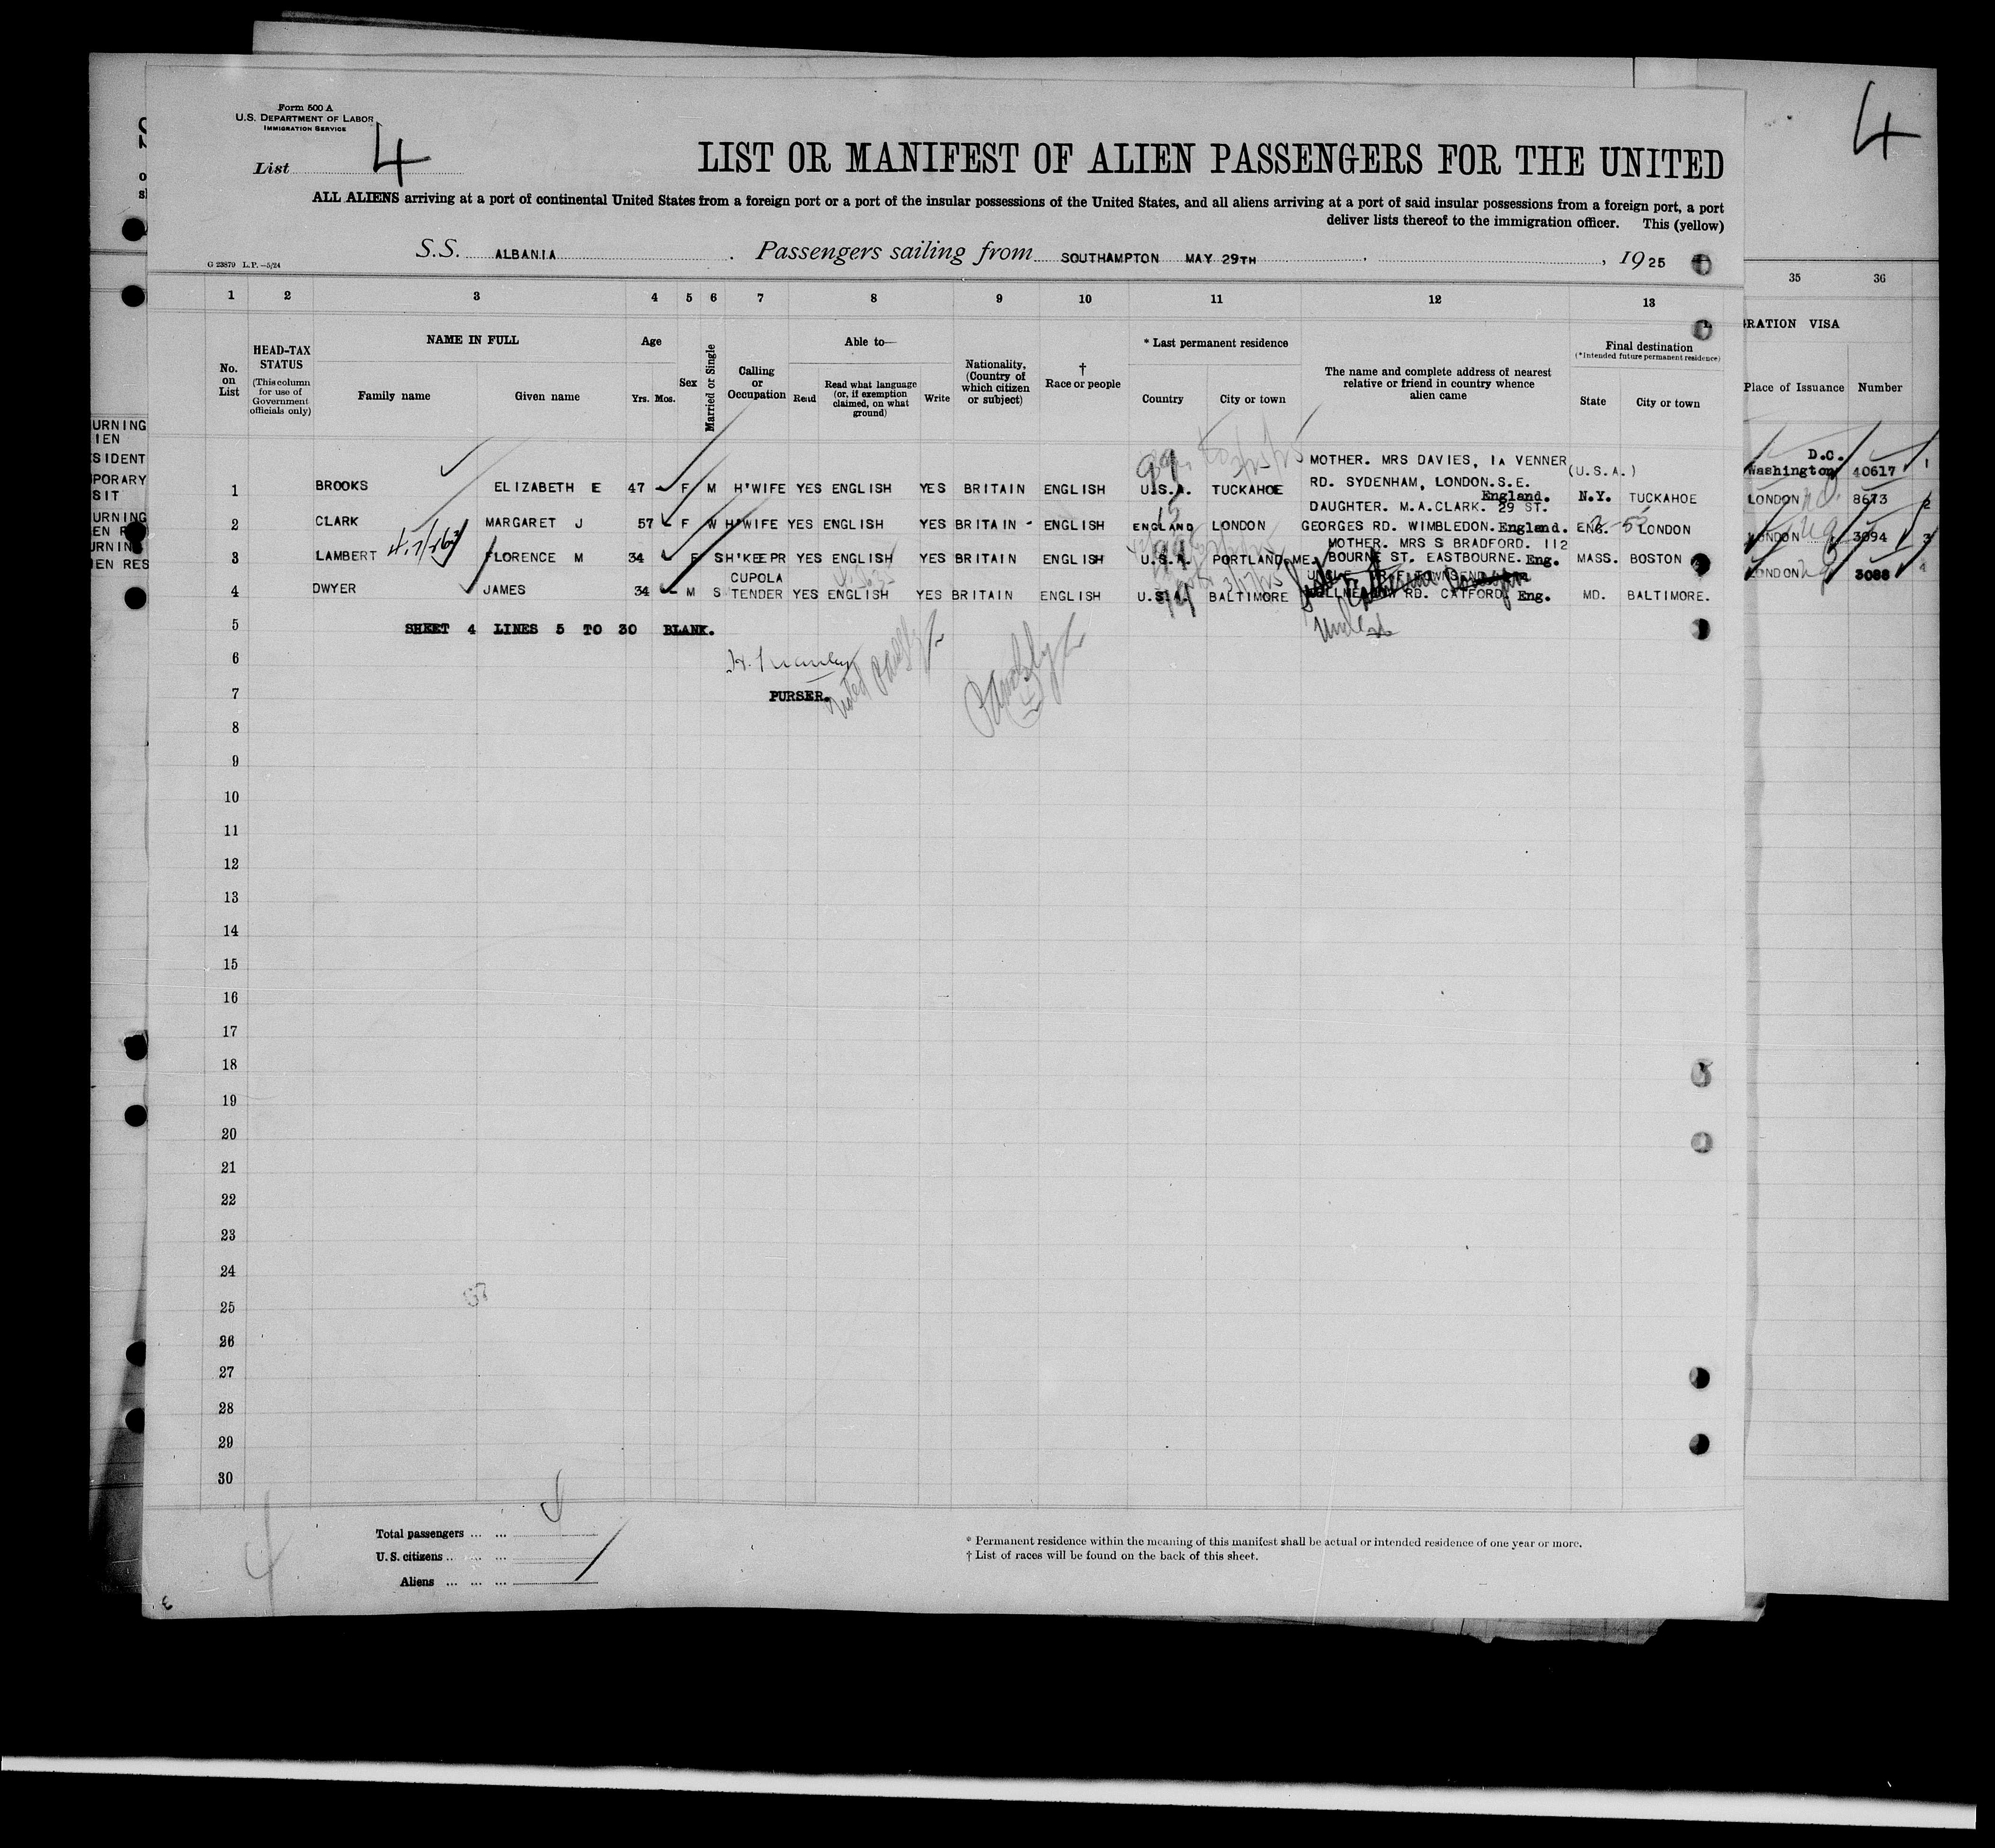 Form 500 A
U.S. DEPARTMENT OF LABOR
IMMIGRATION SERVICE
List 4
4
LIST OR MANIFEST OF ALIEN PASSENGERS FOR THE UNITED
ALL ALIENS arriving at a port of continental United States from a foreign port or a port of the insular possessions of the United States, and all aliens arriving at a port of said insular possessions from a foreign port, a port
deliver lists thereof to the immigration officer. This (yellow)
S.S. ALBANIA. Passengers sailing from SOUTHAMPTON MAY 29TH, 1925
G 23879 L.P.-5/24
1 2 3 4 5 6 7 8 9 10 11 12 13 35 36
No. on List
HEAD-TAX STATUS
(This column for use of Government officials only)
NAME IN FULL
Family name Given name
Age
Yrs. Mos.
Sex
Married or Single
Calling or Occupation
Able to—
Read
Read what language (or, if exemption claimed, on what ground)
Write
Nationality, (Country of which citizen or subject)
† Race or people
* Last permanent residence
Country City or town
The name and complete address of nearest relative or friend in country whence alien came
Final destination
(*Intended future permanent residence)
State City or town
RATION VISA
Place of Issuance Number
URNING
IEN
SIDENT
PORARY
SIT
URNING
EN R
URNING
IEN RES
MOTHER. MRS DAVIES, 1A VENNER (U.S.A.) D.C.
1 BROOKS ELIZABETH E 47 F M H'WIFE YES ENGLISH YES BRITAIN ENGLISH U.S.A. TUCKAHOE RD. SYDENHAM, LONDON.S.E. England. N.Y. TUCKAHOE Washington 40617 1
DAUGHTER. M.A.CLARK. 29 ST.
2 CLARK MARGARET J 57 F W H'WIFE YES ENGLISH YES BRITAIN - ENGLISH ENGLAND LONDON GEORGES RD. WIMBLEDON. England. ENG. LONDON LONDON 8673 2
MOTHER. MRS S BRADFORD. 112
3 LAMBERT FLORENCE M 34 F S H'KEEPR YES ENGLISH YES BRITAIN ENGLISH U.S.A. PORTLAND.ME. BOURNE ST. EASTBOURNE. Eng. MASS. BOSTON LONDON 3094 3
CUPOLA UNCLE TOWNSEND
4 DWYER JAMES 34 M S TENDER YES ENGLISH YES BRITAIN ENGLISH U.S.A. BALTIMORE RD. CATFORD. Eng. MD. BALTIMORE. LONDON 3088 4
Uncle
5 SHEET 4 LINES 5 TO 30 BLANK.
6
7 PURSER.
8
9
10
11
12
13
14
15
16
17
18
19
20
21
22
23
24
25
26
27
28
29
30
Total passengers ... ...
U.S. citizens ... ... ...
Aliens ... ... ...
* Permanent residence within the meaning of this manifest shall be actual or intended residence of one year or more.
† List of races will be found on the back of this sheet.